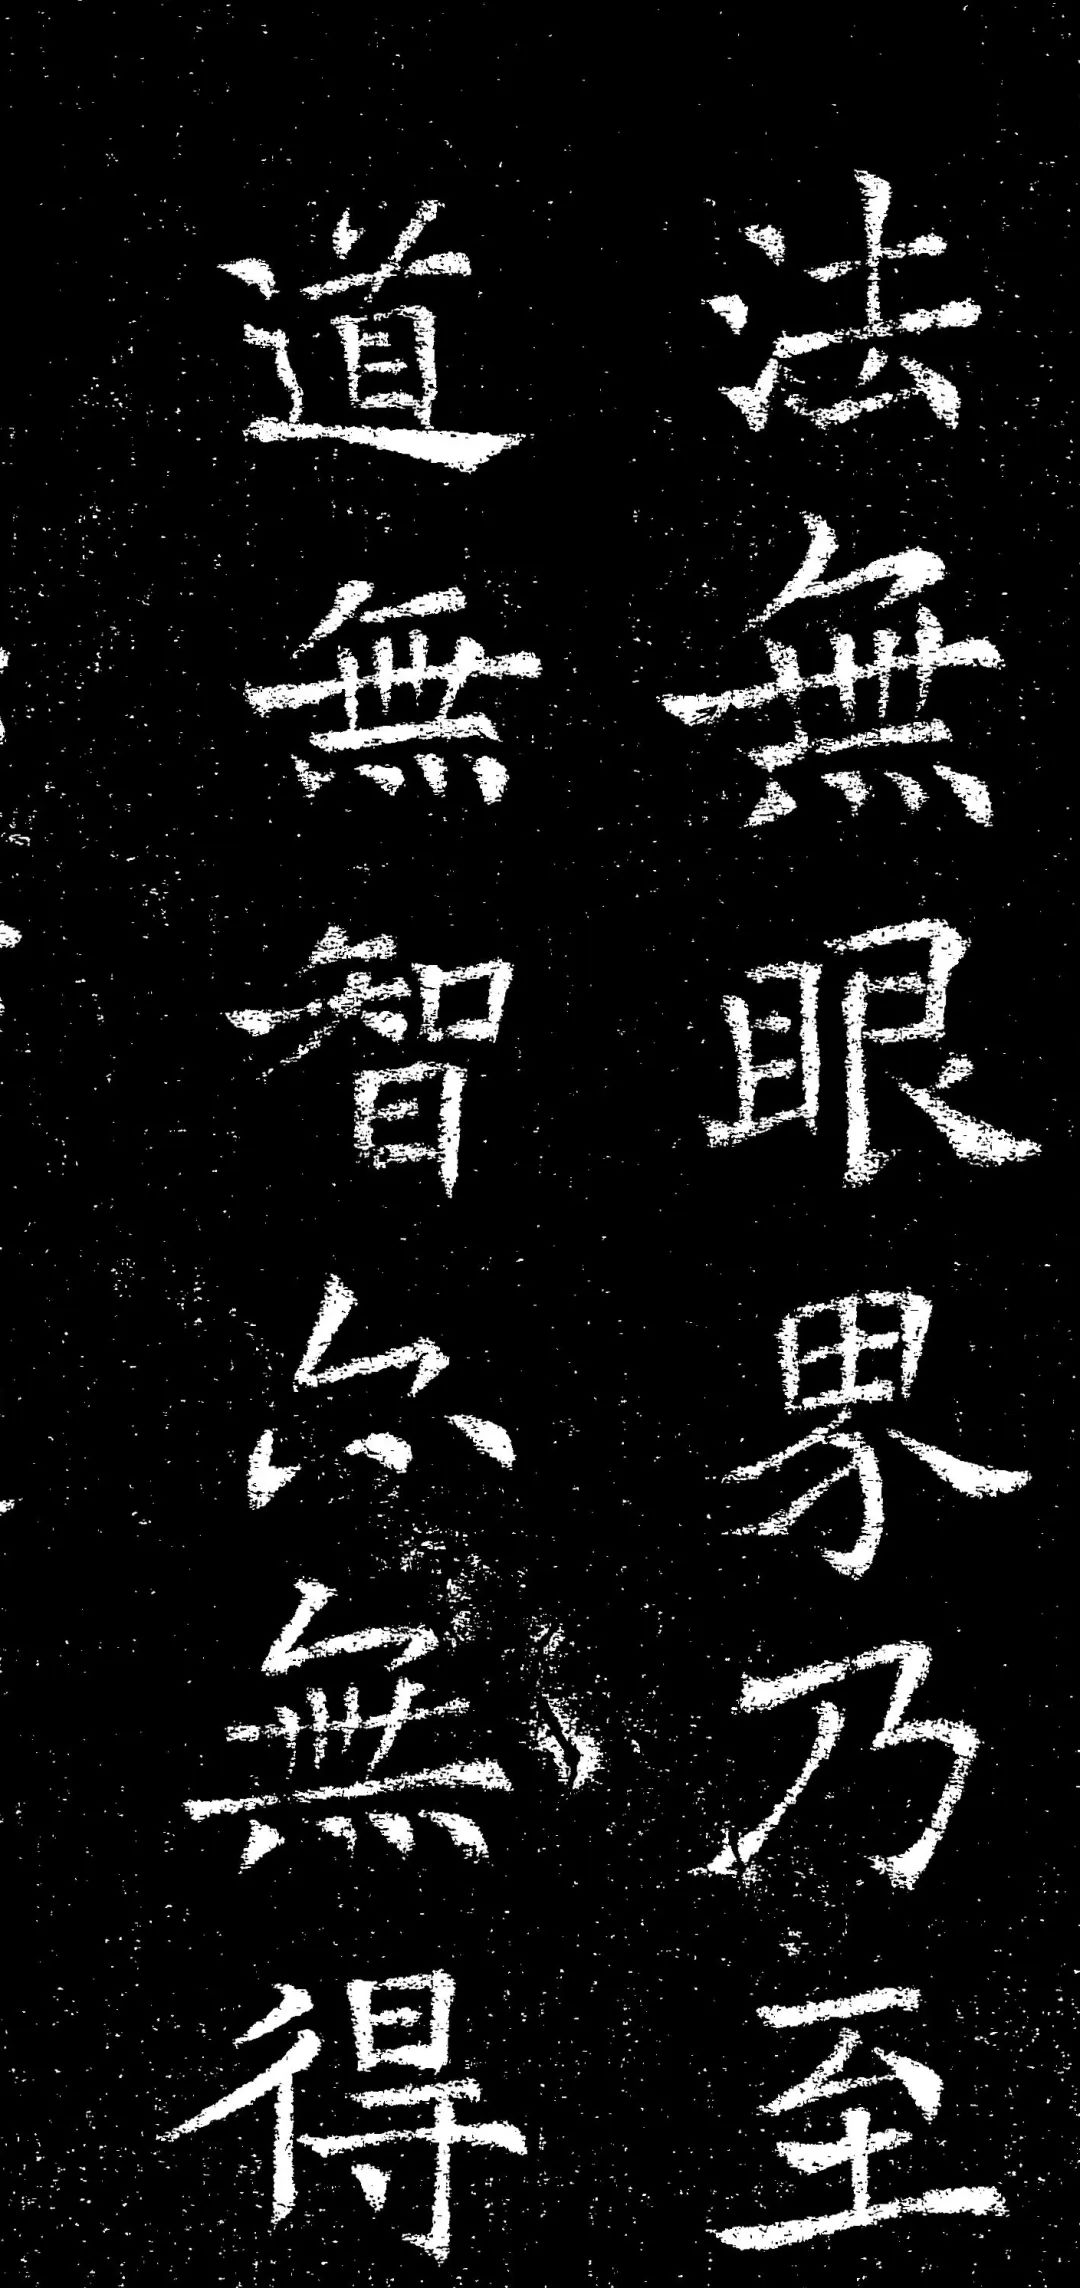 法無眼界乃至
道無智亦無得